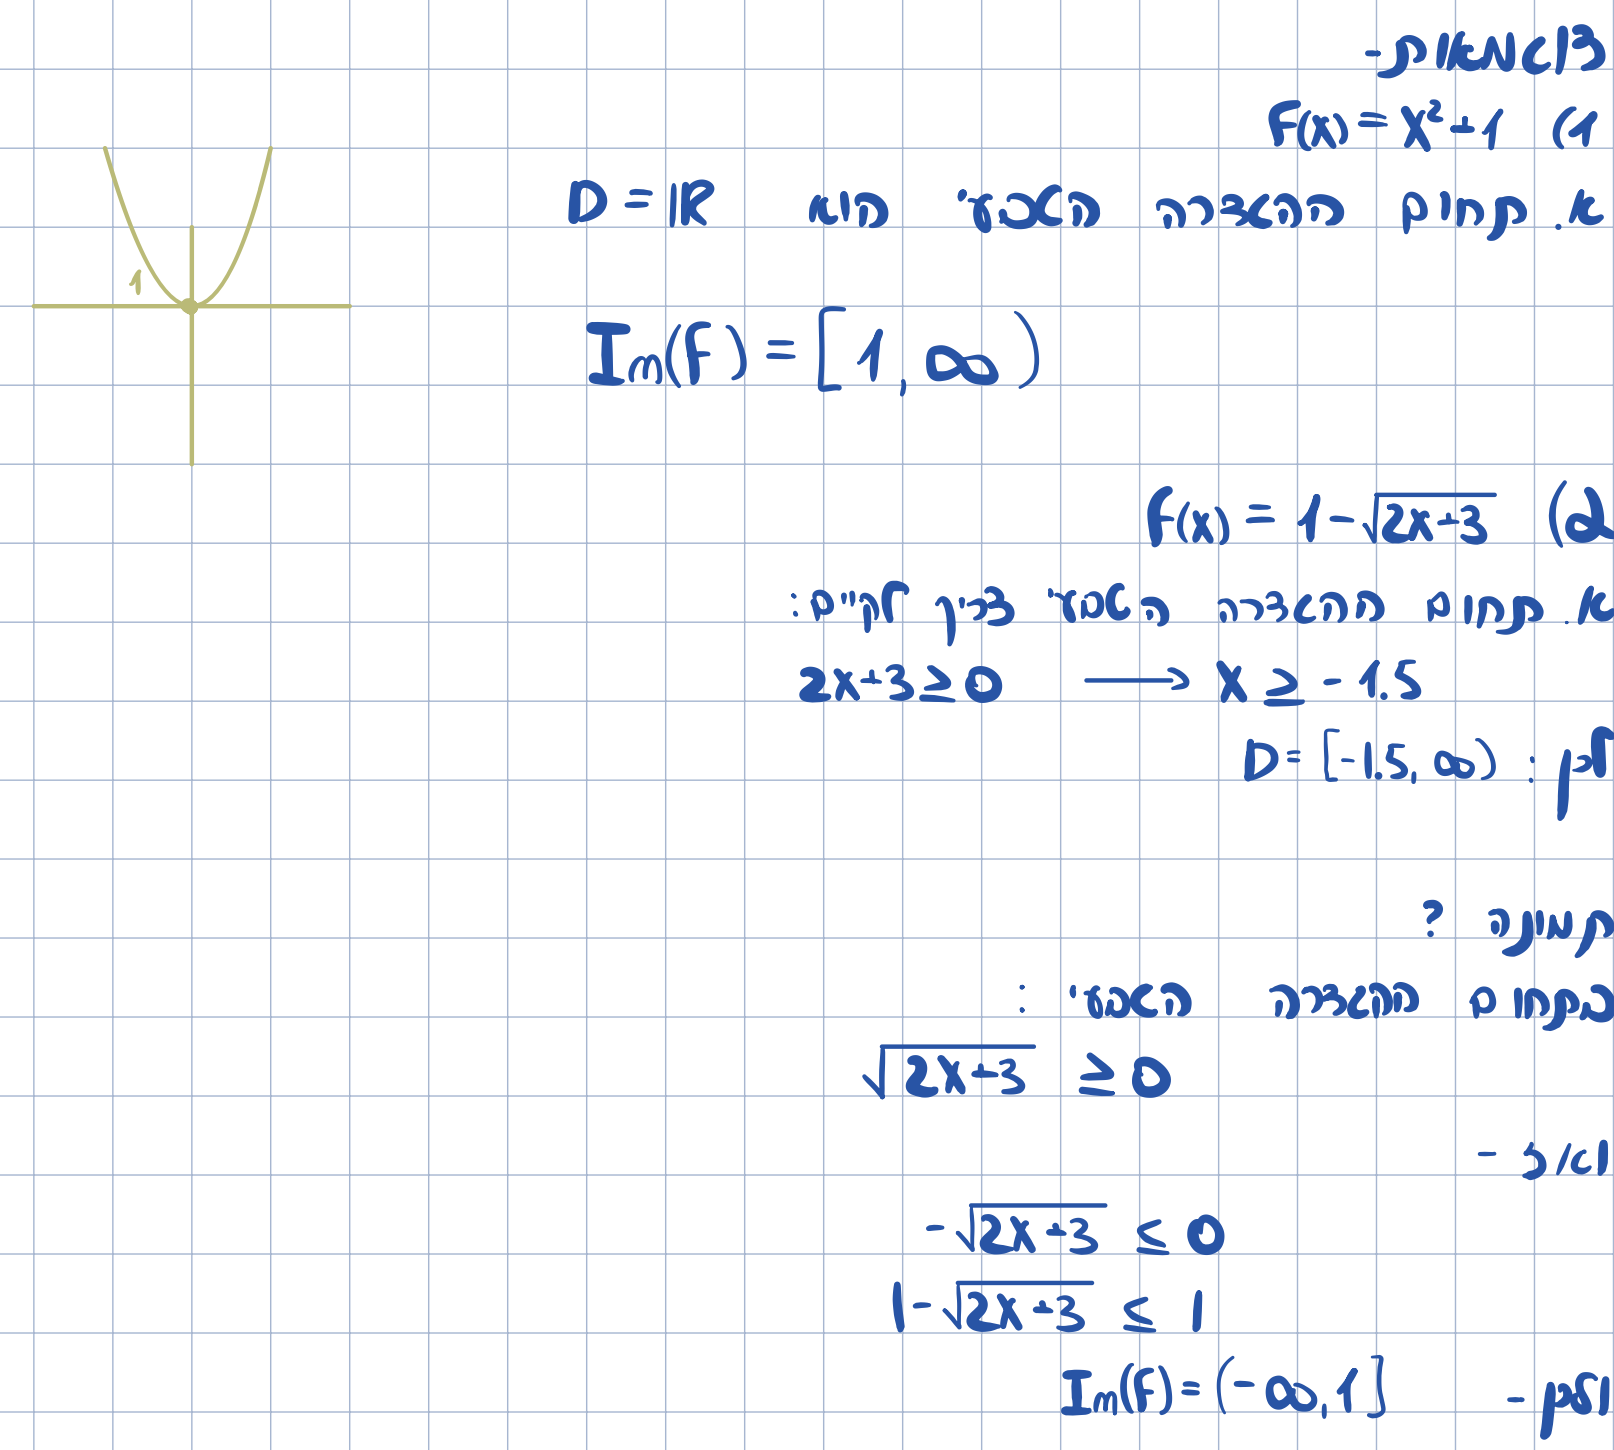 דוגמאות-
1) F(x) = x²+1
א. תחום ההגדרה הטבעי הוא D = ℝ
1
Im(F) = [1, ∞)
2) F(x) = 1-√(2x+3)
א. תחום ההגדרה הטבעי צריך לקיים:
2x+3≥0 ⟶ x ≥ -1.5
לכן: D = [-1.5, ∞)
תמונה?
בתחום ההגדרה הטבעי:
√(2x+3) ≥ 0
ואז -
-√(2x+3) ≤ 0
1-√(2x+3) ≤ 1
ולכן - Im(F) = (-∞, 1]